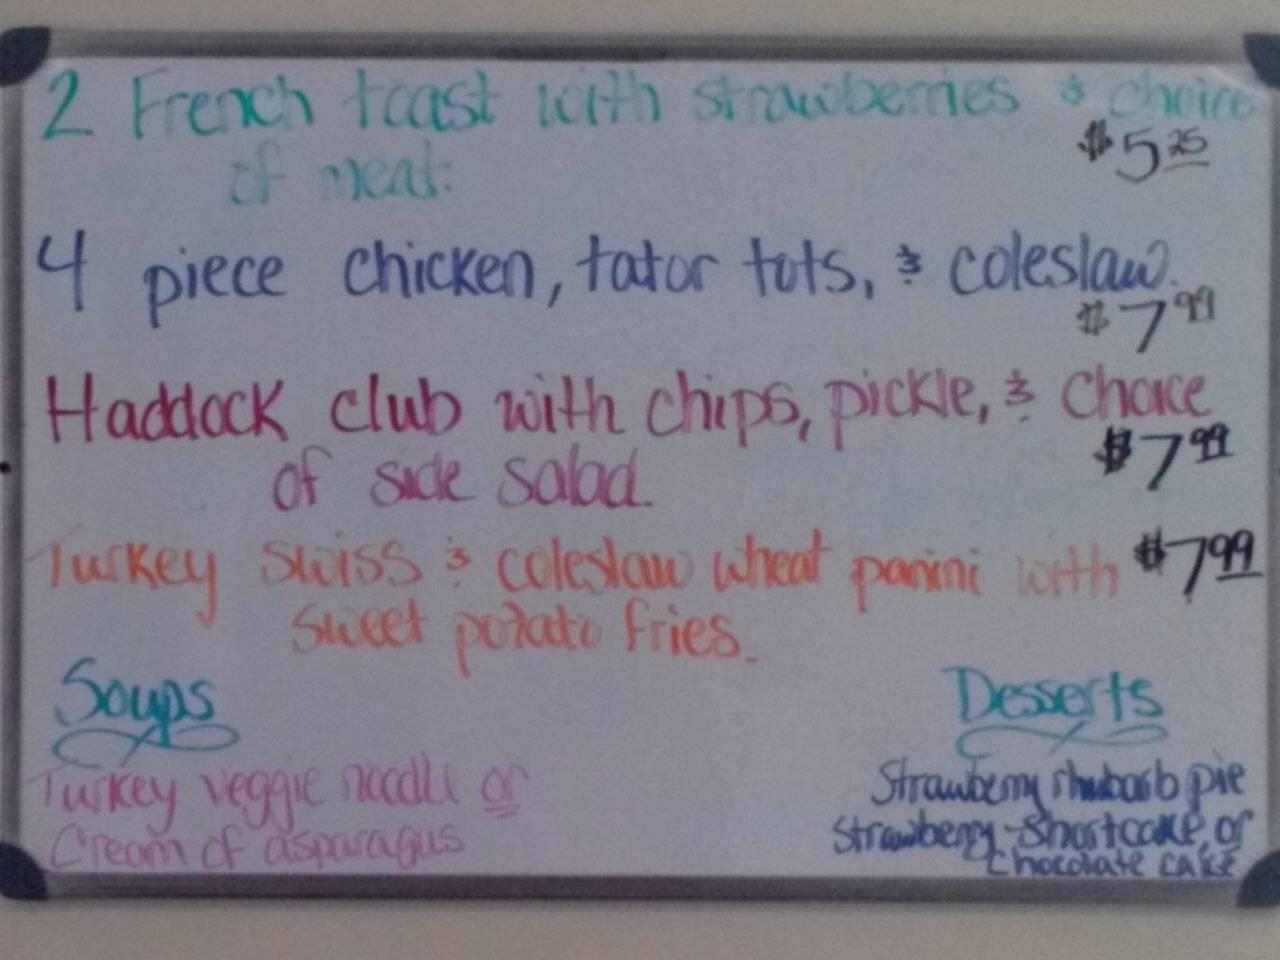 2 French toast with strawberries & choice
of meat. $5.25
4 piece chicken, tator tots, & coleslaw.
$7.99
Haddock club with chips, pickle, & choice
of side salad. $7.99
Turkey swiss & coleslaw wheat panini with $7.99
sweet potato fries.
Soups
Turkey veggie noodle or
Cream of asparagus
Desserts
Strawberry rhubarb pie
Strawberry-shortcake, or
chocolate cake